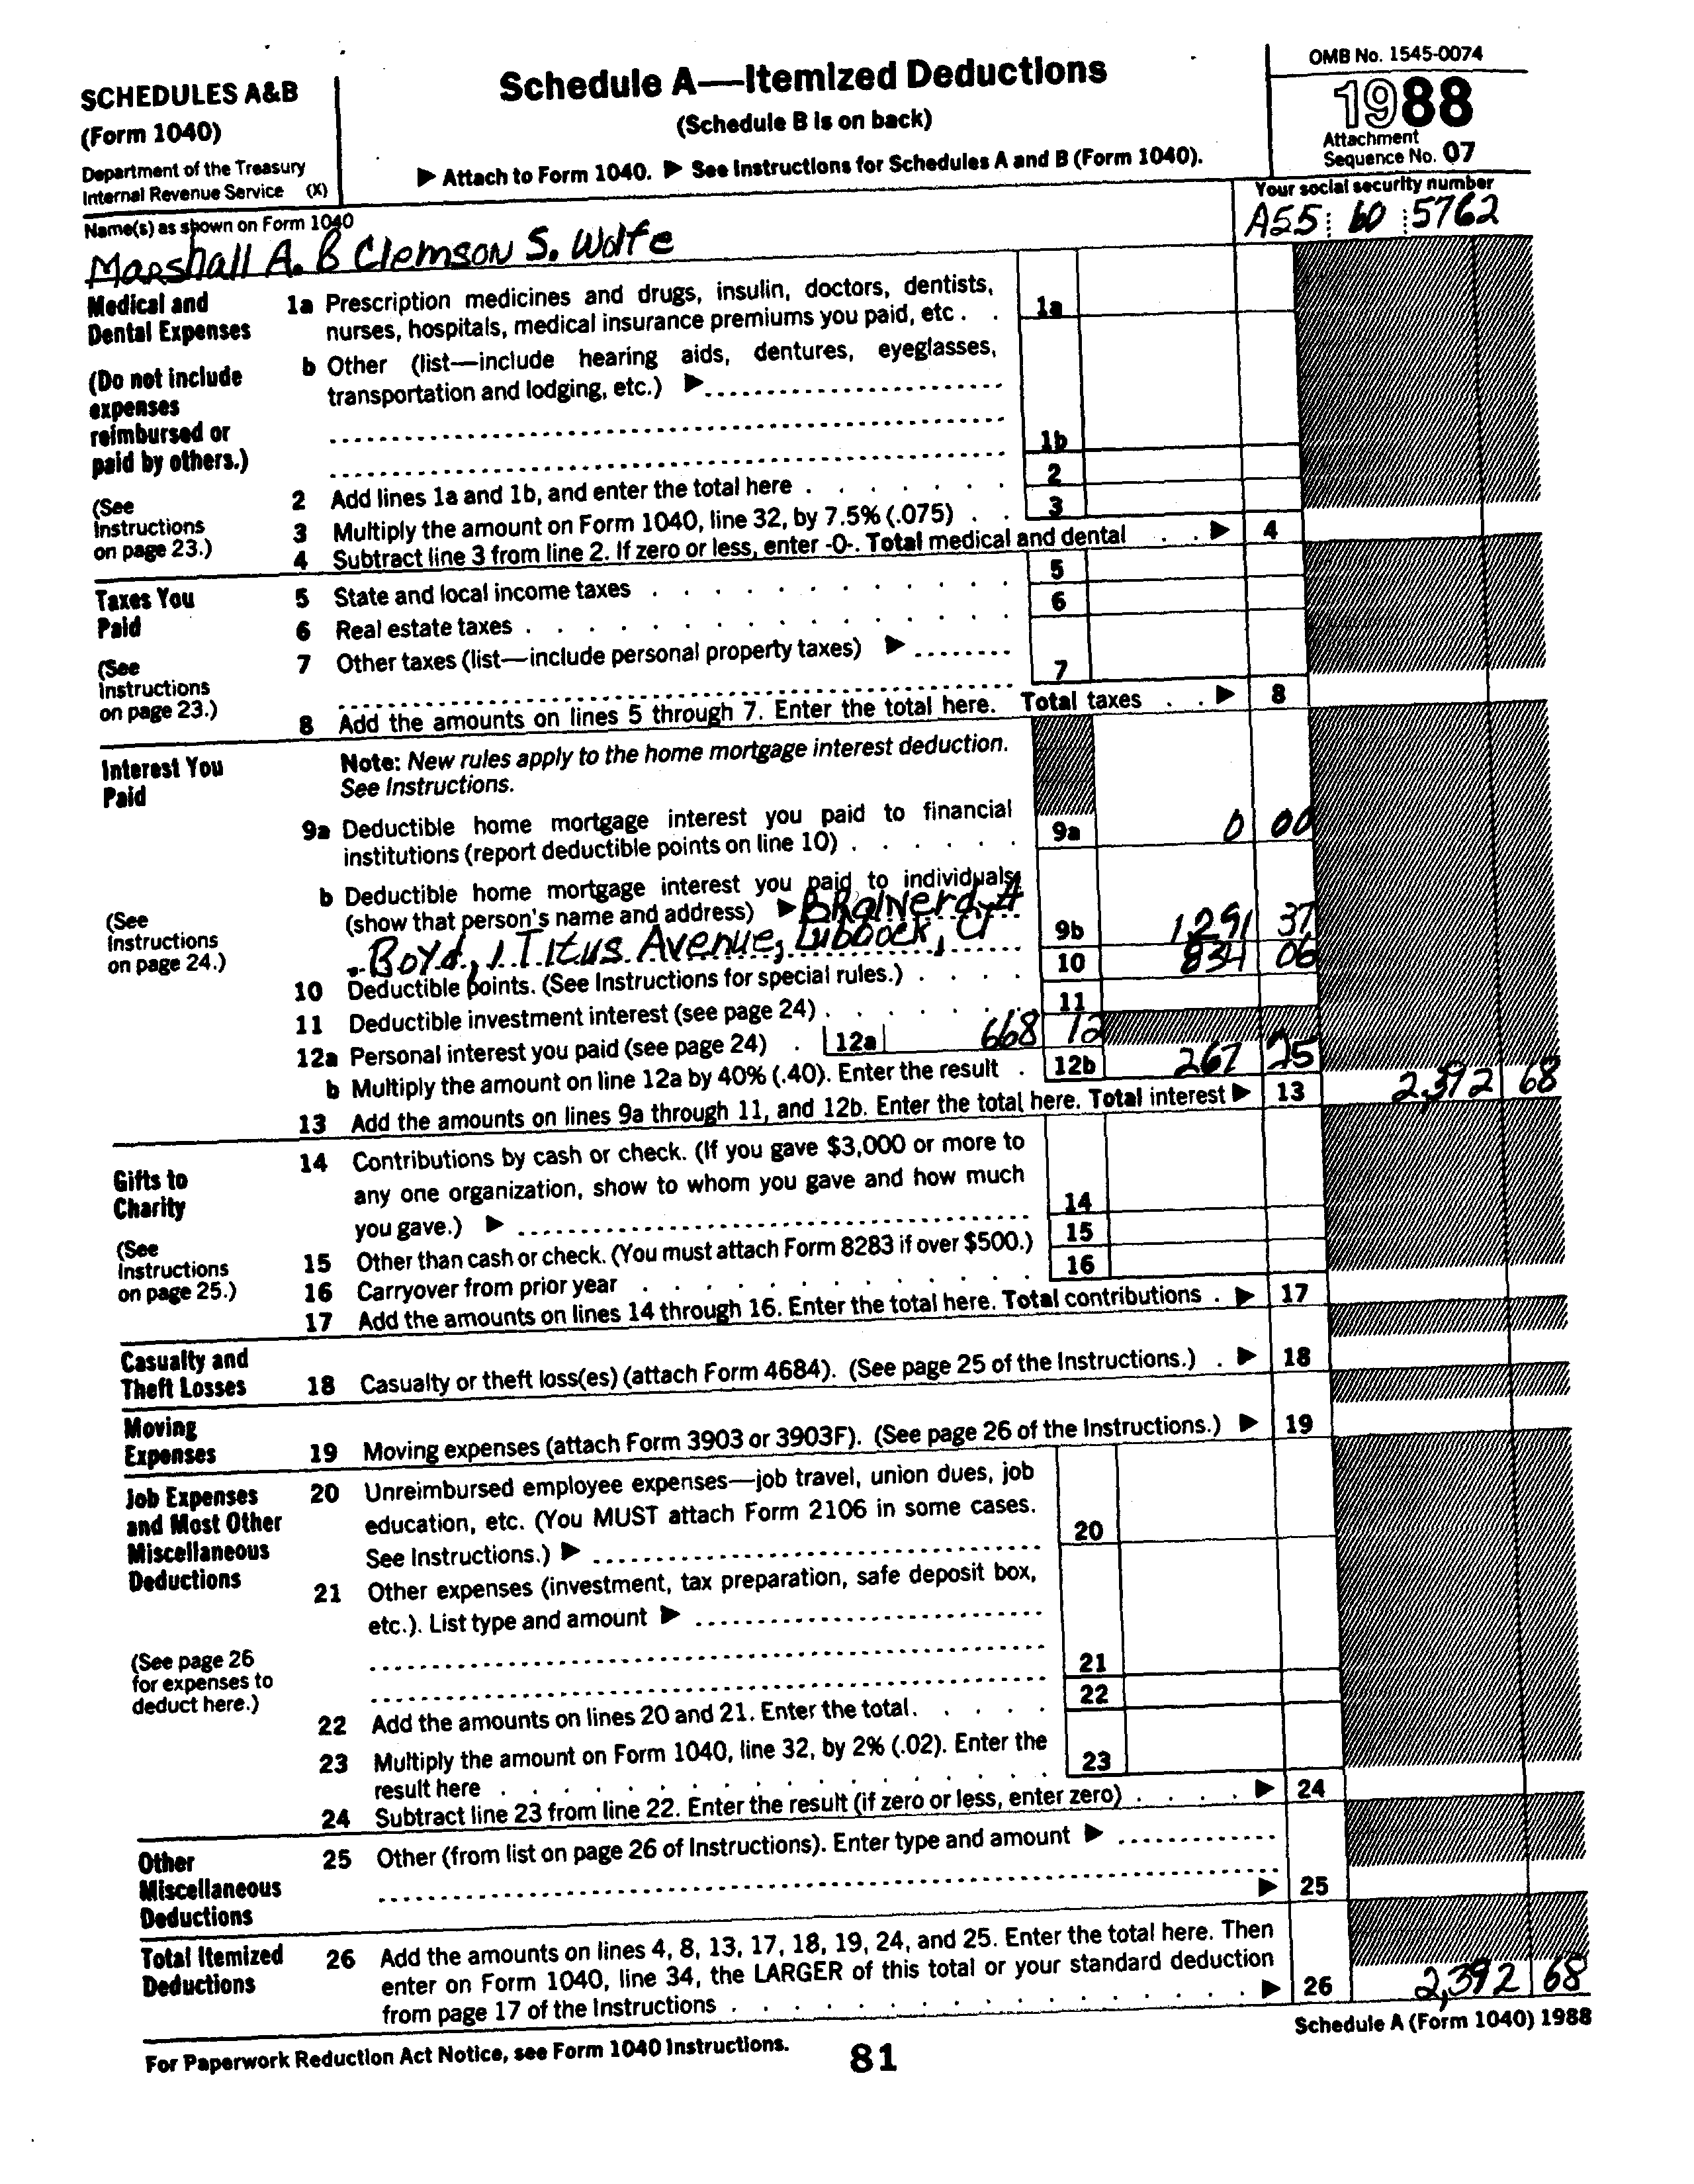 SCHEDULES A&B
(Form 1040)
Department of the Treasury
Internal Revenue Service (X)
Schedule A—Itemized Deductions
(Schedule B is on back)
▶ Attach to Form 1040. ▶ See Instructions for Schedules A and B (Form 1040).
OMB No. 1545-0074
1988
Attachment
Sequence No. 07
Name(s) as shown on Form 1040
Marshall A. B Clemson S. Wolfe
Your social security number
A55 60 5762
Medical and
Dental Expenses
(Do not include
expenses
reimbursed or
paid by others.)
(See
Instructions
on page 23.)
1a Prescription medicines and drugs, insulin, doctors, dentists,
nurses, hospitals, medical insurance premiums you paid, etc . . 1a
b Other (list—include hearing aids, dentures, eyeglasses,
transportation and lodging, etc.) ▶
1b
2 Add lines 1a and 1b, and enter the total here . . . . . . . 2
3 Multiply the amount on Form 1040, line 32, by 7.5% (.075) . . 3
4 Subtract line 3 from line 2. If zero or less, enter -0-. Total medical and dental . . ▶ 4
Taxes You
Paid
(See
Instructions
on page 23.)
5 State and local income taxes . . . . . . . . . . . . 5
6 Real estate taxes . . . . . . . . . . . . . . . . 6
7 Other taxes (list—include personal property taxes) ▶
7
8 Add the amounts on lines 5 through 7. Enter the total here. Total taxes . . ▶ 8
Interest You
Paid
(See
Instructions
on page 24.)
Note: New rules apply to the home mortgage interest deduction.
See Instructions.
9a Deductible home mortgage interest you paid to financial
institutions (report deductible points on line 10) . . . . . . 9a 0 00
b Deductible home mortgage interest you paid to individuals
(show that person's name and address) ▶ Brainerd A
Boyd, 1 Titus Avenue, Lubbock, CT 9b 1,291 37
10 Deductible points. (See Instructions for special rules.) . . . . 10 834 06
11 Deductible investment interest (see page 24) . . . . . . . 11
12a Personal interest you paid (see page 24) . 12a 668 12
b Multiply the amount on line 12a by 40% (.40). Enter the result . 12b 267 25
13 Add the amounts on lines 9a through 11, and 12b. Enter the total here. Total interest ▶ 13 2,392 68
Gifts to
Charity
(See
Instructions
on page 25.)
14 Contributions by cash or check. (If you gave $3,000 or more to
any one organization, show to whom you gave and how much
you gave.) ▶ 14
15 Other than cash or check. (You must attach Form 8283 if over $500.) 15
16 Carryover from prior year . . . . . . . . . . . . . 16
17 Add the amounts on lines 14 through 16. Enter the total here. Total contributions . ▶ 17
Casualty and
Theft Losses
18 Casualty or theft loss(es) (attach Form 4684). (See page 25 of the Instructions.) . ▶ 18
Moving
Expenses
19 Moving expenses (attach Form 3903 or 3903F). (See page 26 of the Instructions.) ▶ 19
Job Expenses
and Most Other
Miscellaneous
Deductions
(See page 26
for expenses to
deduct here.)
20 Unreimbursed employee expenses—job travel, union dues, job
education, etc. (You MUST attach Form 2106 in some cases.
See Instructions.) ▶ 20
21 Other expenses (investment, tax preparation, safe deposit box,
etc.). List type and amount ▶
21
22 Add the amounts on lines 20 and 21. Enter the total. . . . . 22
23 Multiply the amount on Form 1040, line 32, by 2% (.02). Enter the
result here . . . . . . . . . . . . . . . . . . 23
24 Subtract line 23 from line 22. Enter the result (if zero or less, enter zero) . . . . ▶ 24
Other
Miscellaneous
Deductions
25 Other (from list on page 26 of Instructions). Enter type and amount ▶
▶ 25
Total Itemized
Deductions
26 Add the amounts on lines 4, 8, 13, 17, 18, 19, 24, and 25. Enter the total here. Then
enter on Form 1040, line 34, the LARGER of this total or your standard deduction
from page 17 of the Instructions . . . . . . . . . . . . . . . . ▶ 26 2,392 68
For Paperwork Reduction Act Notice, see Form 1040 Instructions.
81
Schedule A (Form 1040) 1988